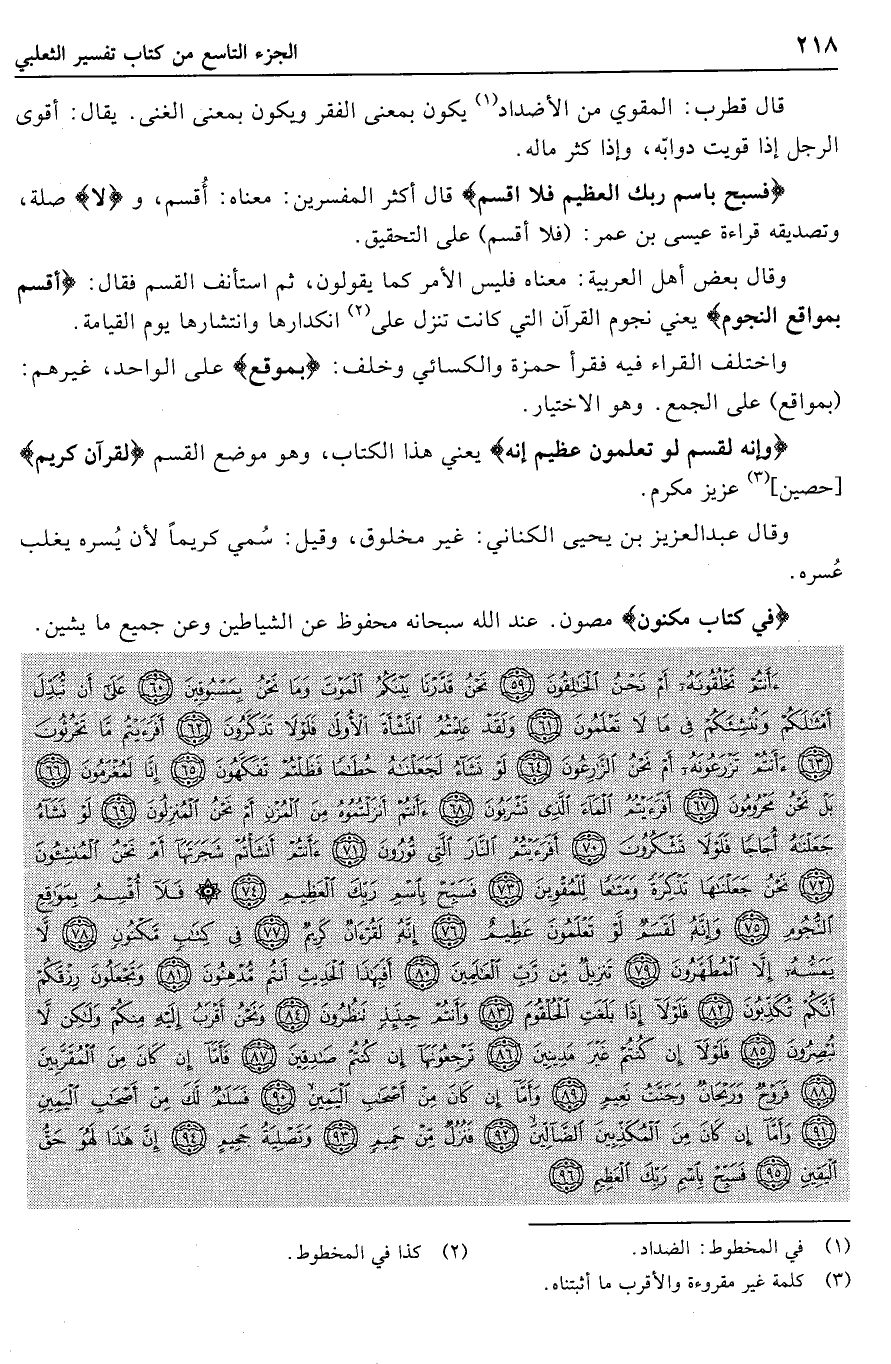 ٢١٨
الجزء التاسع من كتاب تفسير الثعلبي
قال قطرب: المقوي من الأضداد(١) يكون بمعنى الفقر ويكون بمعنى الغنى. يقال: أقوى
الرجل إذا قويت دوابّه، وإذا كثر ماله.
﴿فسبح باسم ربك العظيم فلا اقسم﴾ قال أكثر المفسرين: معناه: أُقسم، و ﴿لا﴾ صلة،
وتصديقه قراءة عيسى بن عمر: (فلا أقسم) على التحقيق.
وقال بعض أهل العربية: معناه فليس الأمر كما يقولون، ثم استأنف القسم فقال: ﴿أقسم
بمواقع النجوم﴾ يعني نجوم القرآن التي كانت تنزل على(٢) انكدارها وانتشارها يوم القيامة.
واختلف القراء فيه فقرأ حمزة والكسائي وخلف: ﴿بموقع﴾ على الواحد، غيرهم:
(بمواقع) على الجمع. وهو الاختيار.
﴿وإنه لقسم لو تعلمون عظيم إنه﴾ يعني هذا الكتاب، وهو موضع القسم ﴿لقرآن كريم﴾
[حصين](٣) عزيز مكرم.
وقال عبدالعزيز بن يحيى الكناني: غير مخلوق، وقيل: سُمي كريماً لأن يُسره يغلب
عُسره.
﴿في كتاب مكنون﴾ مصون. عند الله سبحانه محفوظ عن الشياطين وعن جميع ما يشين.
ءَأَنتُمْ تَخْلُقُونَهُۥٓ أَمْ نَحْنُ ٱلْخَٰلِقُونَ ٥٩ نَحْنُ قَدَّرْنَا بَيْنَكُمُ ٱلْمَوْتَ وَمَا نَحْنُ بِمَسْبُوقِينَ ٦٠ عَلَىٰٓ أَن نُّبَدِّلَ
أَمْثَٰلَكُمْ وَنُنشِئَكُمْ فِى مَا لَا تَعْلَمُونَ ٦١ وَلَقَدْ عَلِمْتُمُ ٱلنَّشْأَةَ ٱلْأُولَىٰ فَلَوْلَا تَذَكَّرُونَ ٦٢ أَفَرَءَيْتُم مَّا تَحْرُثُونَ
٦٣ ءَأَنتُمْ تَزْرَعُونَهُۥٓ أَمْ نَحْنُ ٱلزَّٰرِعُونَ ٦٤ لَوْ نَشَآءُ لَجَعَلْنَٰهُ حُطَٰمًا فَظَلْتُمْ تَفَكَّهُونَ ٦٥ إِنَّا لَمُغْرَمُونَ ٦٦
بَلْ نَحْنُ مَحْرُومُونَ ٦٧ أَفَرَءَيْتُمُ ٱلْمَآءَ ٱلَّذِى تَشْرَبُونَ ٦٨ ءَأَنتُمْ أَنزَلْتُمُوهُ مِنَ ٱلْمُزْنِ أَمْ نَحْنُ ٱلْمُنزِلُونَ ٦٩ لَوْ نَشَآءُ
جَعَلْنَٰهُ أُجَاجًا فَلَوْلَا تَشْكُرُونَ ٧٠ أَفَرَءَيْتُمُ ٱلنَّارَ ٱلَّتِى تُورُونَ ٧١ ءَأَنتُمْ أَنشَأْتُمْ شَجَرَتَهَآ أَمْ نَحْنُ ٱلْمُنشِـُٔونَ
٧٢ نَحْنُ جَعَلْنَٰهَا تَذْكِرَةً وَمَتَٰعًا لِّلْمُقْوِينَ ٧٣ فَسَبِّحْ بِٱسْمِ رَبِّكَ ٱلْعَظِيمِ ٧٤ ۞ فَلَآ أُقْسِمُ بِمَوَٰقِعِ
ٱلنُّجُومِ ٧٥ وَإِنَّهُۥ لَقَسَمٌ لَّوْ تَعْلَمُونَ عَظِيمٌ ٧٦ إِنَّهُۥ لَقُرْءَانٌ كَرِيمٌ ٧٧ فِى كِتَٰبٍ مَّكْنُونٍ ٧٨ لَّا
يَمَسُّهُۥٓ إِلَّا ٱلْمُطَهَّرُونَ ٧٩ تَنزِيلٌ مِّن رَّبِّ ٱلْعَٰلَمِينَ ٨٠ أَفَبِهَٰذَا ٱلْحَدِيثِ أَنتُم مُّدْهِنُونَ ٨١ وَتَجْعَلُونَ رِزْقَكُمْ
أَنَّكُمْ تُكَذِّبُونَ ٨٢ فَلَوْلَآ إِذَا بَلَغَتِ ٱلْحُلْقُومَ ٨٣ وَأَنتُمْ حِينَئِذٍ تَنظُرُونَ ٨٤ وَنَحْنُ أَقْرَبُ إِلَيْهِ مِنكُمْ وَلَٰكِن لَّا
تُبْصِرُونَ ٨٥ فَلَوْلَآ إِن كُنتُمْ غَيْرَ مَدِينِينَ ٨٦ تَرْجِعُونَهَآ إِن كُنتُمْ صَٰدِقِينَ ٨٧ فَأَمَّآ إِن كَانَ مِنَ ٱلْمُقَرَّبِينَ
٨٨ فَرَوْحٌ وَرَيْحَانٌ وَجَنَّتُ نَعِيمٍ ٨٩ وَأَمَّآ إِن كَانَ مِنْ أَصْحَٰبِ ٱلْيَمِينِ ٩٠ فَسَلَٰمٌ لَّكَ مِنْ أَصْحَٰبِ ٱلْيَمِينِ
٩١ وَأَمَّآ إِن كَانَ مِنَ ٱلْمُكَذِّبِينَ ٱلضَّآلِّينَ ٩٢ فَنُزُلٌ مِّنْ حَمِيمٍ ٩٣ وَتَصْلِيَةُ جَحِيمٍ ٩٤ إِنَّ هَٰذَا لَهُوَ حَقُّ
ٱلْيَقِينِ ٩٥ فَسَبِّحْ بِٱسْمِ رَبِّكَ ٱلْعَظِيمِ ٩٦
(١) في المخطوط: الضداد.
(٢) كذا في المخطوط.
(٣) كلمة غير مقروءة والأقرب ما أثبتناه.